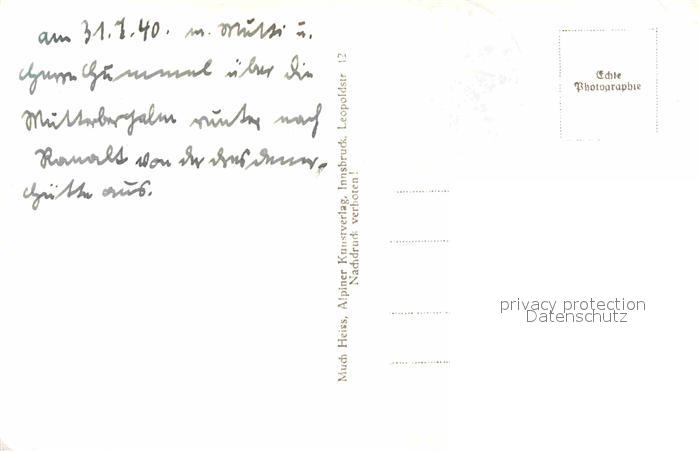 am 31.7.40. m. Mutti u.
Herrn Hummel über die
Mutterbergalm runter nach
Ranalt von der dresdener-
hütte aus.
Much Heiss, Alpiner Kunstverlag, Innsbruck, Leopoldstr 12
Nachdruck verboten!
Echte
Photographie
privacy protection
Datenschutz